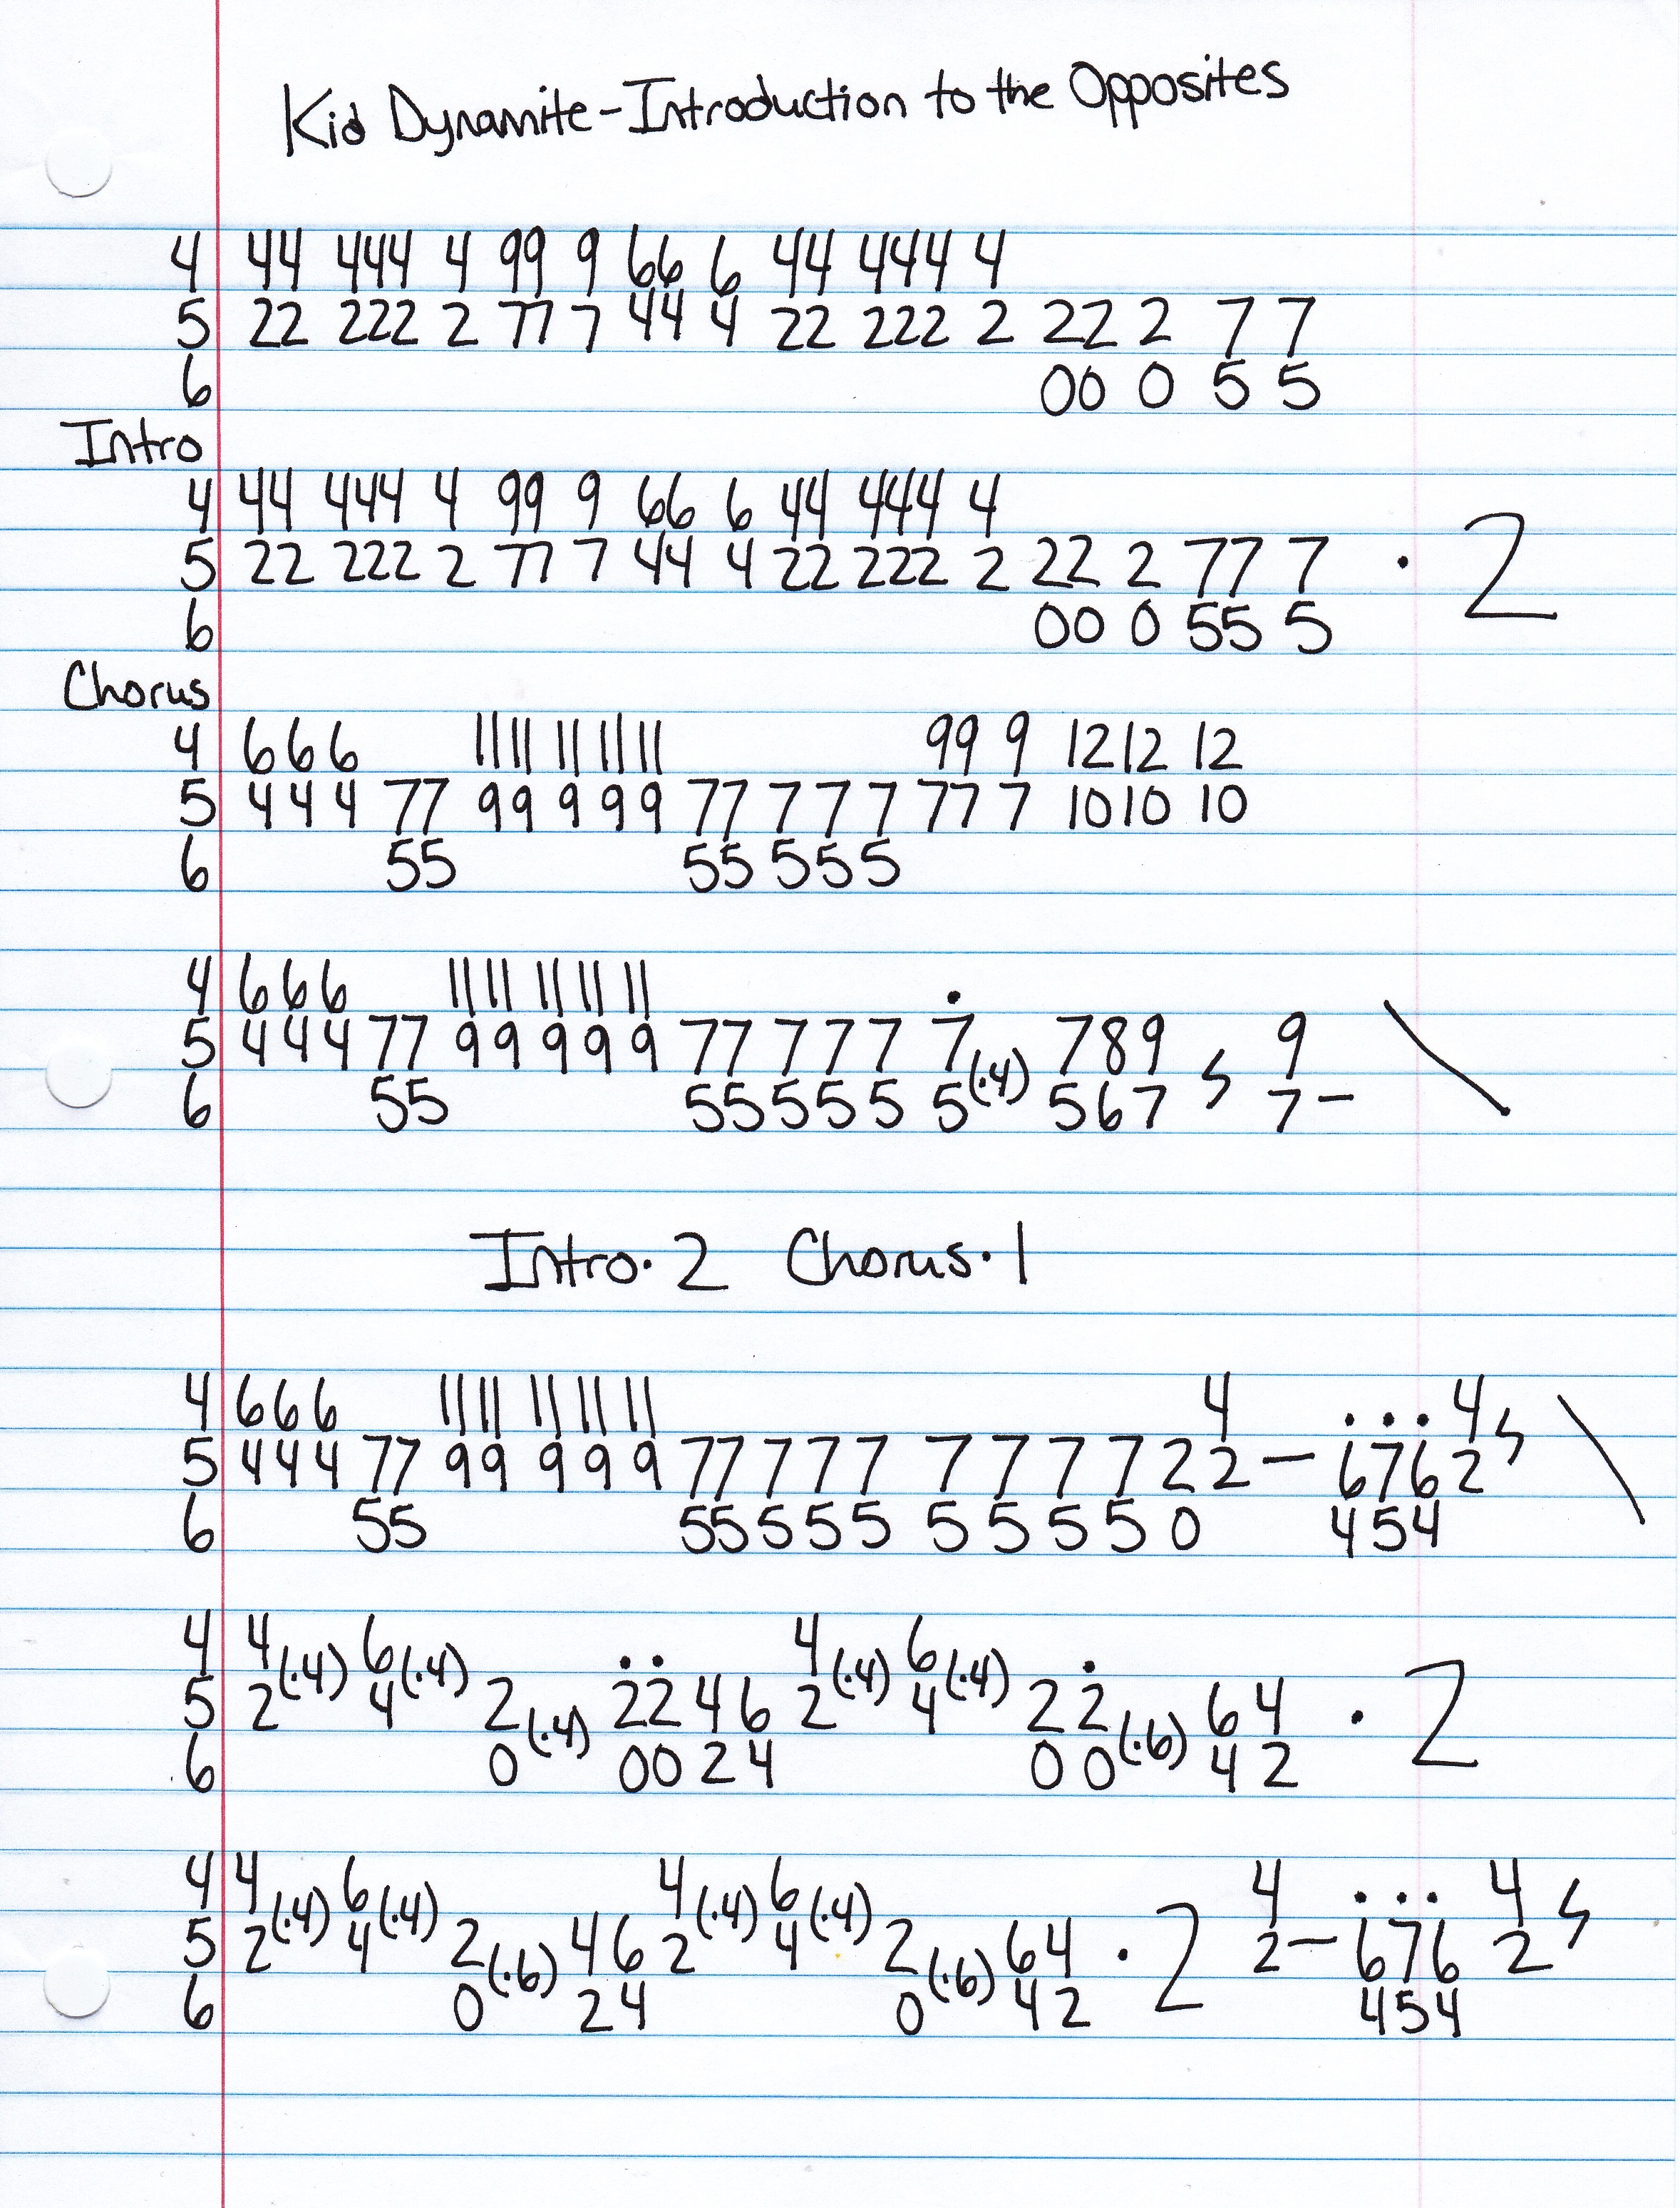 Kid Dynamite-Introduction to the Opposites
4 44 444 4 99 9 66 6 44 4444 4
5 22 222 2 77 7 44 4 22 222 2 22 2 7 7
6 00 0 5 5
Intro
4 44 444 4 99 9 66 6 44 444 4
5 22 222 2 77 7 44 4 22 222 2 22 2 77 7 · 2
6 00 0 55 5
Chorus
4 6 6 6 11 11 11 11 11 99 9 12 12 12
5 4 4 4 77 99 9 9 9 77 7 7 7 77 7 10 10 10
6 55 55 5 5 5
4 6 6 6 11 11 11 11 11 .
5 4 4 4 77 99 9 9 9 77 7 7 7 7 (·4) 789 9
6 55 55 5 5 5 5 567 7 –
Intro·2 Chorus·1
4 6 6 6 11 11 11 11 11 4 ... 4
5 4 4 4 77 99 9 9 9 77 7 7 7 7 7 7 7 2 2 – 676 2
6 55 55 5 5 5 5 5 5 5 0 454
4 4 (·4) 6 (·4) .. 4 (·4) 6 (·4) .
5 2 4 2 (·4) 22 4 6 2 4 2 2 (·6) 6 4 · 2
6 0 00 2 4 0 0 4 2
4 4 (·4) 6 (·4) 4 (·4) 6 (·4) 4 ... 4
5 2 4 2 (·6) 4 6 2 4 2 (·6) 6 4 · 2 2 – 676 2
6 0 2 4 0 4 2 454